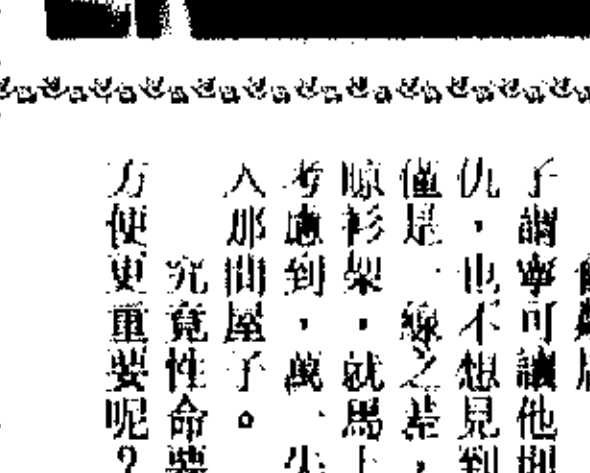 子謂寧可讓他
仇，也不想見到
僅是一線之差，
晾衫架，就馬上
考慮到，萬一
入那間屋子。
究竟性命要
方便更重要呢？